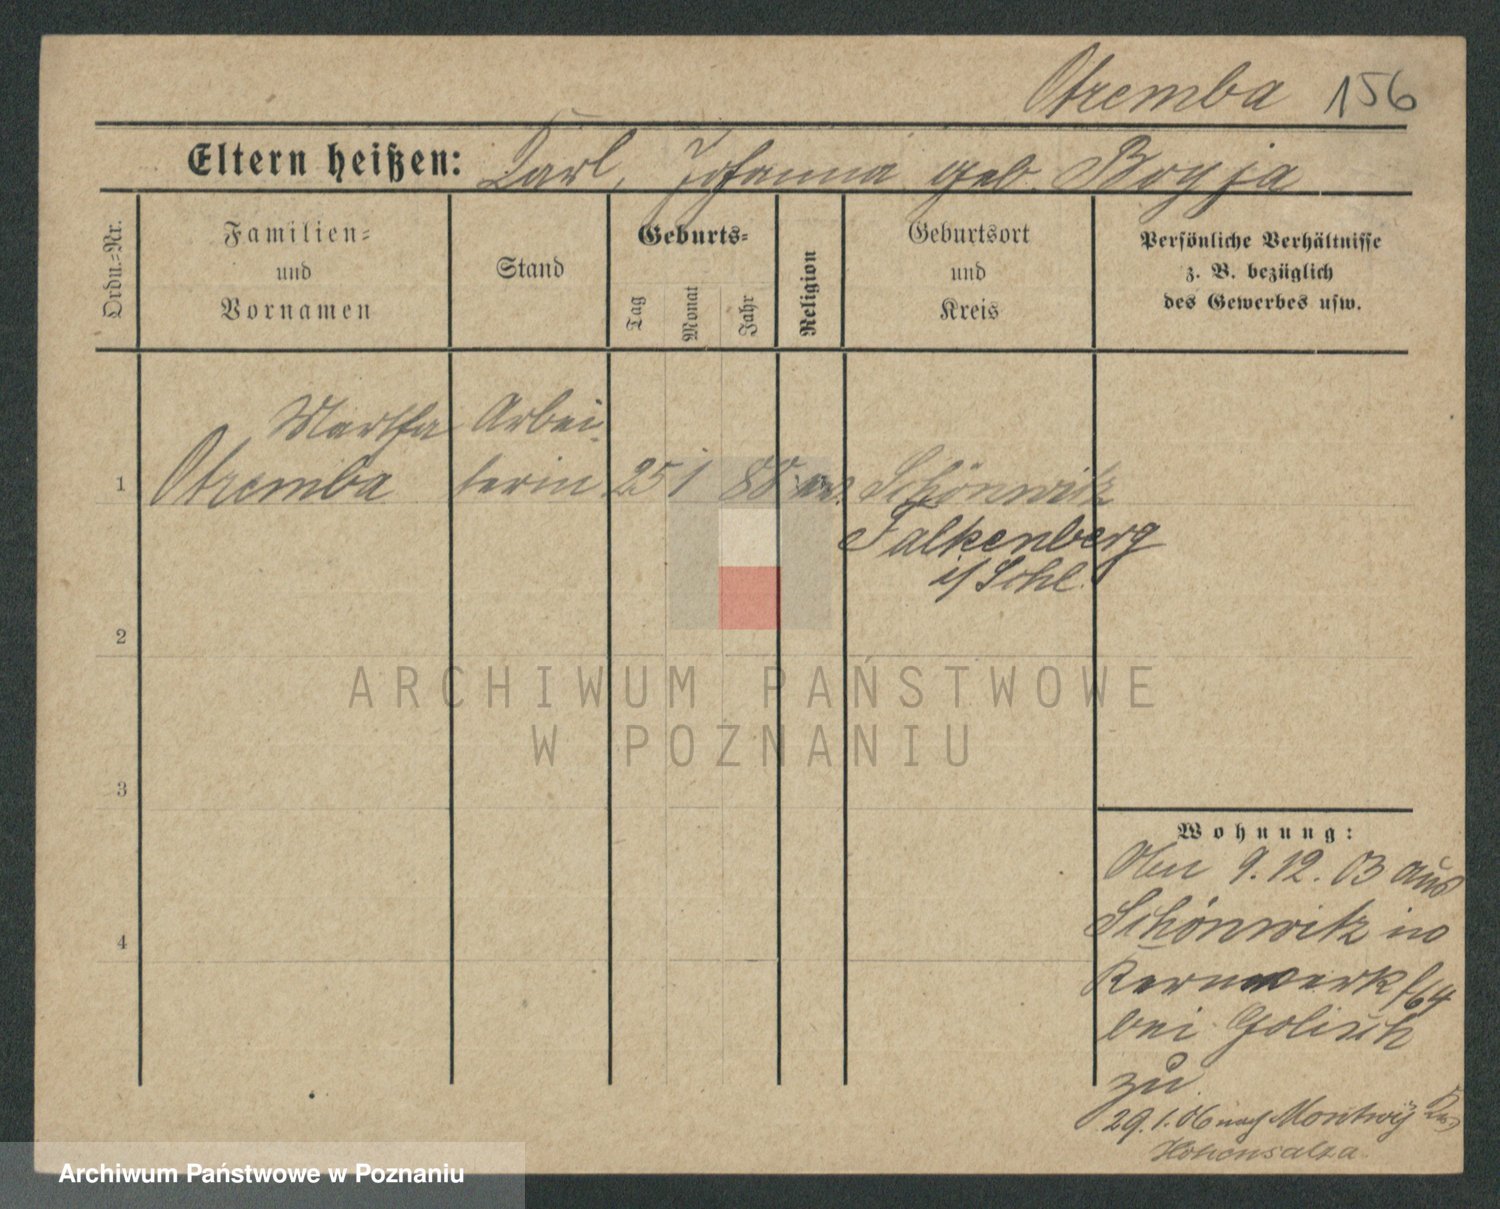 Otremba 156
Eltern heißen: Carl, Johanna geb. Boyja
Ordn.-Nr.
Familien-
und
Vornamen
Stand
Geburts-
Tag
Monat
Jahr
Religion
Geburtsort
und
Kreis
Persönliche Verhältnisse
z. B. bezüglich
des Gewerbes usw.
Martha Arbei-
1 Otremba terin 25 1 88 ev. Schönwitz
Falkenberg
i/Schl.
2
ARCHIWUM PAŃSTWOWE
W POZNANIU
3
Wohnung:
9.12.03 aus
Schönwitz in
4
Kernwerk f64
bei Golisch
zu
29.1.06 nach Montwy
Hohensalza
Archiwum Państwowe w Poznaniu